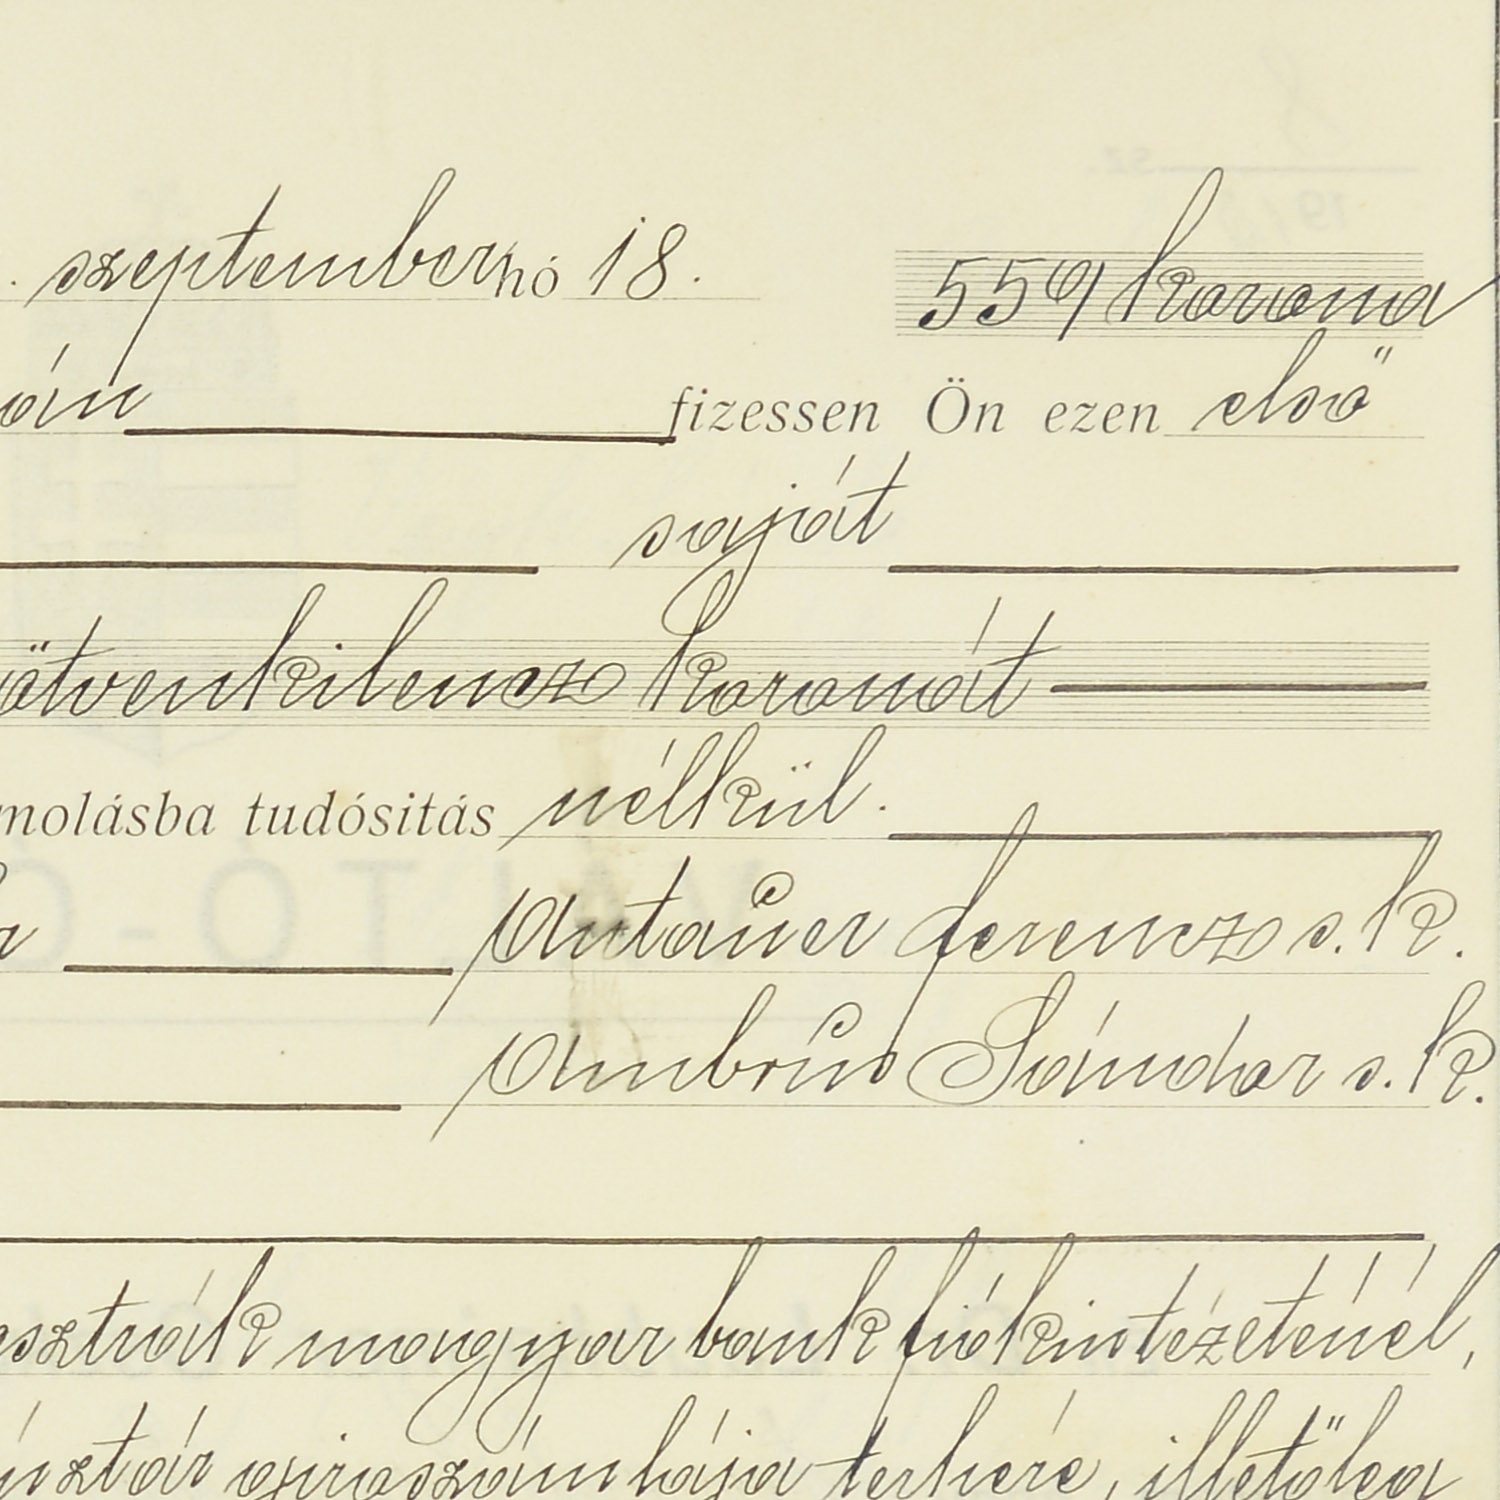 . szeptember hó 18. 559 korona
án fizessen Ön ezen első
saját
ötvenkilencz koronát
molásba tudósitás nélkül.
Antauer Ferencz s. k.
Ambrus Sándor s. k.
osztrák magyar bank fiókintézeténél,
nztár giroszámlája terhére, illetőleg